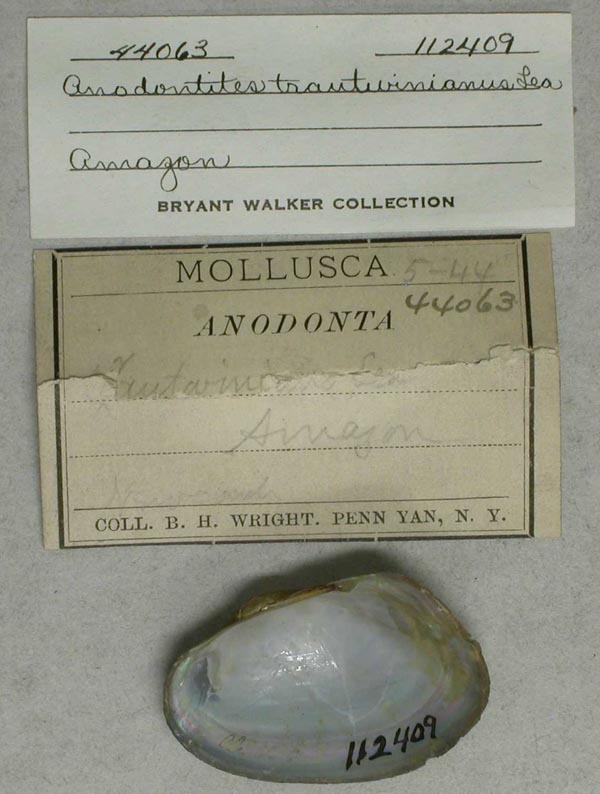 44063 112409
Anodontites trautwinianus Lea
Amazon
BRYANT WALKER COLLECTION
MOLLUSCA 5-44
44063
ANODONTA
Trautwiniana Lea
Amazon
COLL. B. H. WRIGHT. PENN YAN, N. Y.
112409